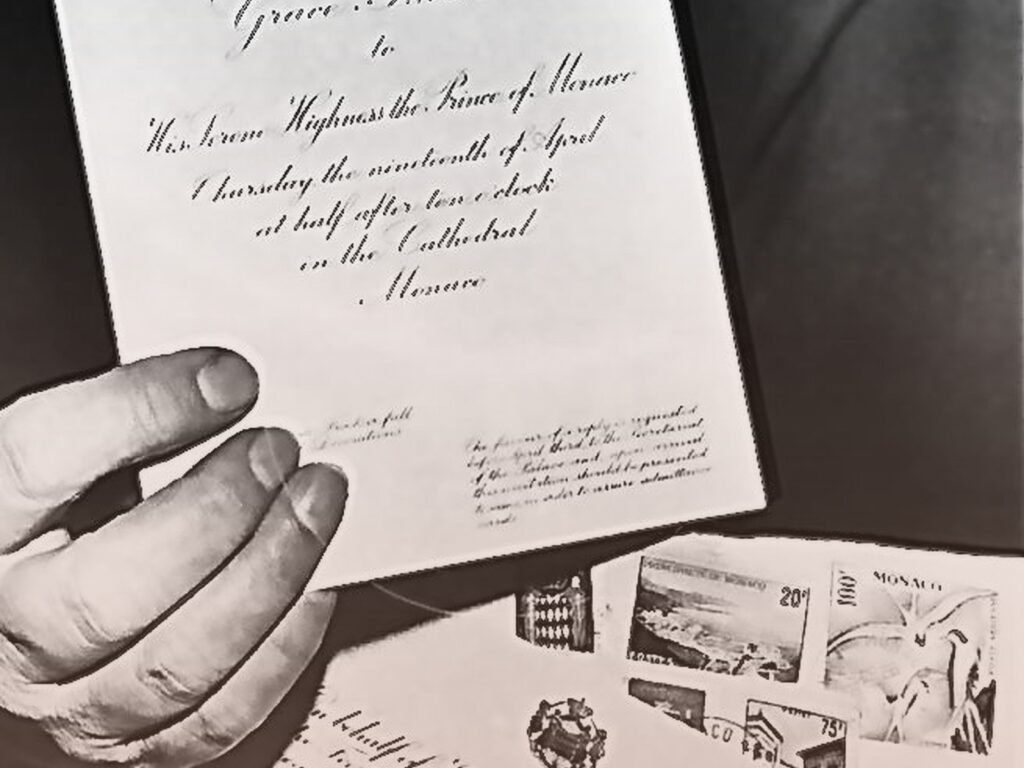 Grace
to
His Serene Highness the Prince of Monaco
Thursday the nineteenth of April
at half after ten o'clock
in the Cathedral
Monaco
full
The favour of a reply is requested
April third to the Secretariat
of the Palace and upon arrival
this invitation should be presented
in order to assure admittance
cards
MONACO
20F
100F
MONACO
POSTES
CO
75F
behalf